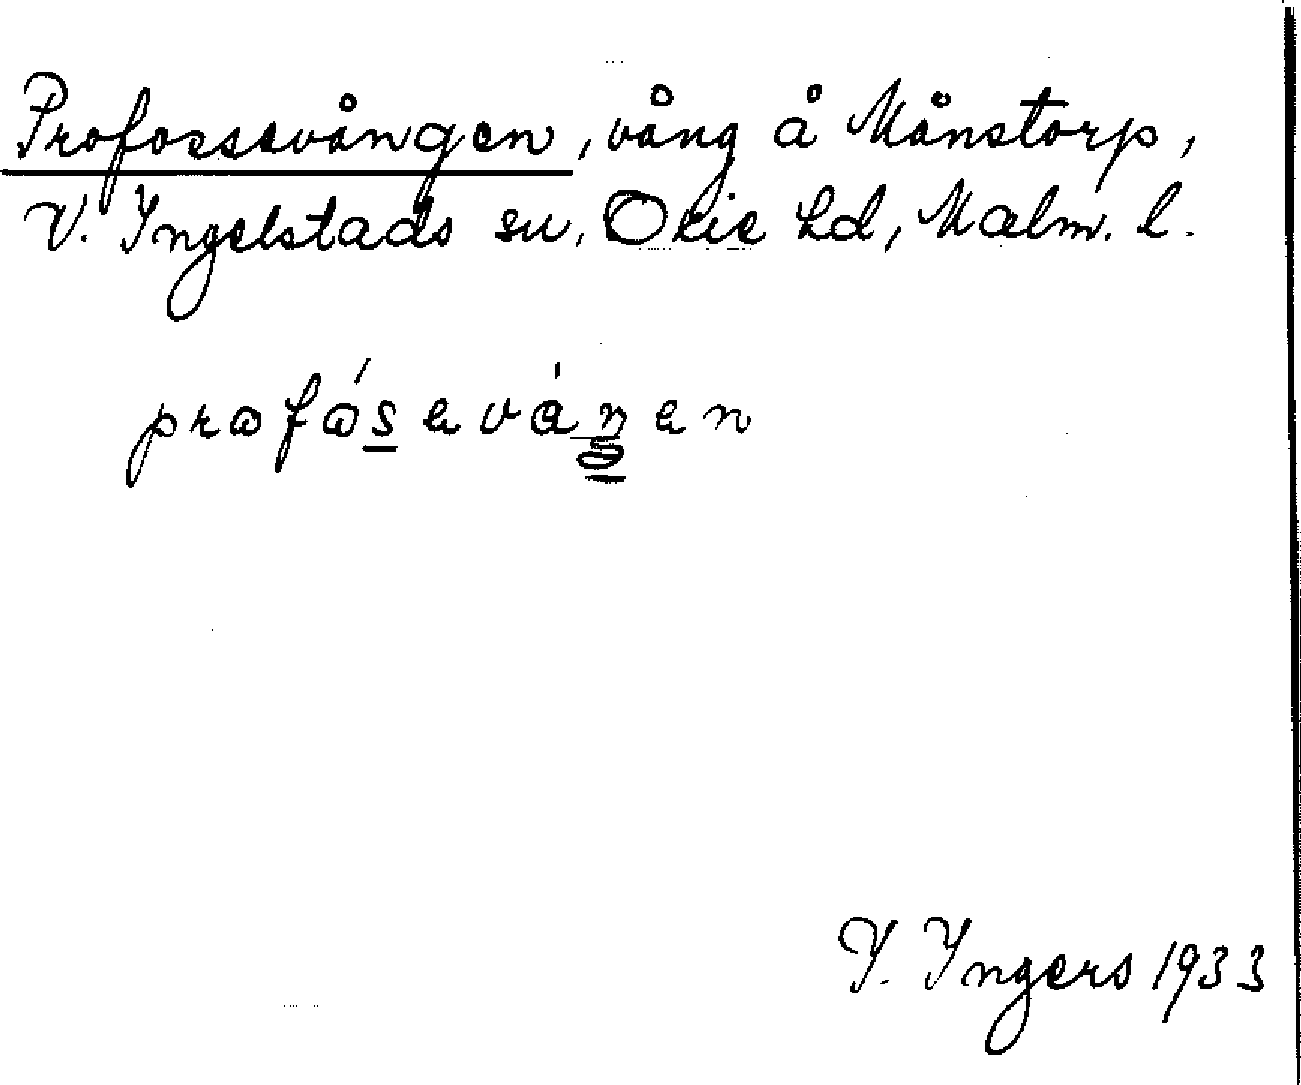 Profossavången, vång å Månstorp,
V. Ingelstads sn, Oxie hd, Malm. l.
profósevåŋen
I. Ingers 1933